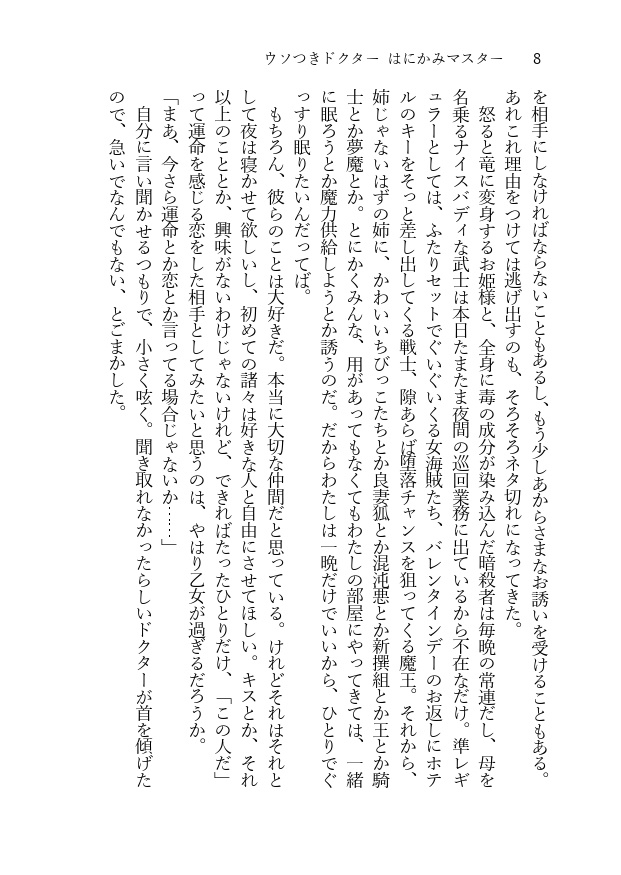 ウソつきドクター はにかみマスター 8
を相手にしなければならないこともあるし、もう少しあからさまなお誘いを受けることもある。
あれこれ理由をつけては逃げ出すのも、そろそろネタ切れになってきた。
怒ると竜に変身するお姫様と、全身に毒の成分が染み込んだ暗殺者は毎晩の常連だし、母を
名乗るナイスバディな武士は本日たまたま夜間の巡回業務に出ているから不在なだけ。準レギ
ュラーとしては、ふたりセットでぐいぐいくる女海賊たち、バレンタインデーのお返しにホテ
ルのキーをそっと差し出してくる戦士、隙あらば堕落チャンスを狙ってくる魔王。それから、
姉じゃないはずの姉に、かわいいちびっこたちとか良妻狐とか混沌悪とか新撰組とか王とか騎
士とか夢魔とか。とにかくみんな、用があってもなくてもわたしの部屋にやってきては、一緒
に眠ろうとか魔力供給しようとか誘うのだ。だからわたしは一晩だけでいいから、ひとりでぐ
っすり眠りたいんだってば。
もちろん、彼らのことは大好きだ。本当に大切な仲間だと思っている。けれどそれはそれと
して夜は寝かせて欲しいし、初めての諸々は好きな人と自由にさせてほしい。キスとか、それ
以上のこととか、興味がないわけじゃないけれど、できればたったひとりだけ、「この人だ」
って運命を感じる恋をした相手としてみたいと思うのは、やはり乙女が過ぎるだろうか。
「まあ、今さら運命とか恋とか言ってる場合じゃないか……」
自分に言い聞かせるつもりで、小さく呟く。聞き取れなかったらしいドクターが首を傾げた
ので、急いでなんでもない、とごまかした。